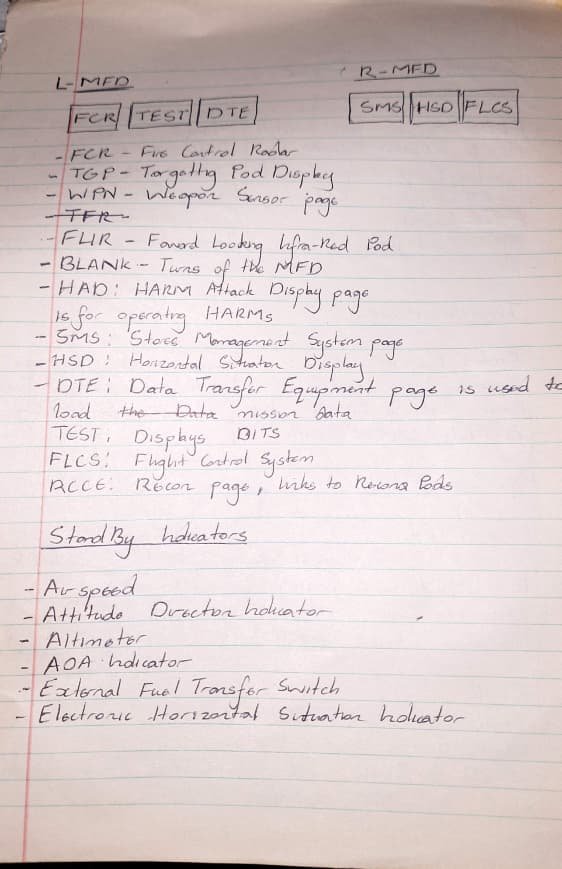 L-MFD R-MFD
FCR TEST DTE SMS HSD FLCS
- FCR - Fire Control Radar
- TGP - Targetting Pod Display
- WPN - Weapon Sensor page
- TFR -
- FLIR - Forward Looking Infra-Red Pod
- BLANK - Turns of the MFD
- HAD: HARM Attack Display page
is for operating HARMs
- SMS: Stores Management System page
- HSD: Horizontal Situation Display
- DTE: Data Transfer Equipment page is used to
load the Data mission data
TEST: Displays BITS
FLCS: Flight Control System
RCCE: Recon page, links to Recona Pods
Stand By Indicators
- Air speed
- Attitude Director Indicator
- Altimeter
- AOA Indicator
- External Fuel Transfer Switch
- Electronic Horizontal Situation Indicator